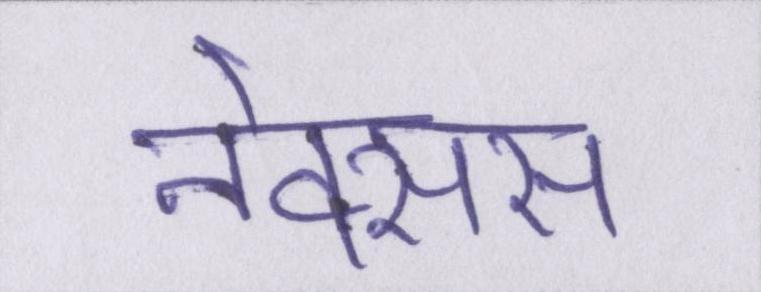 नेक्सस